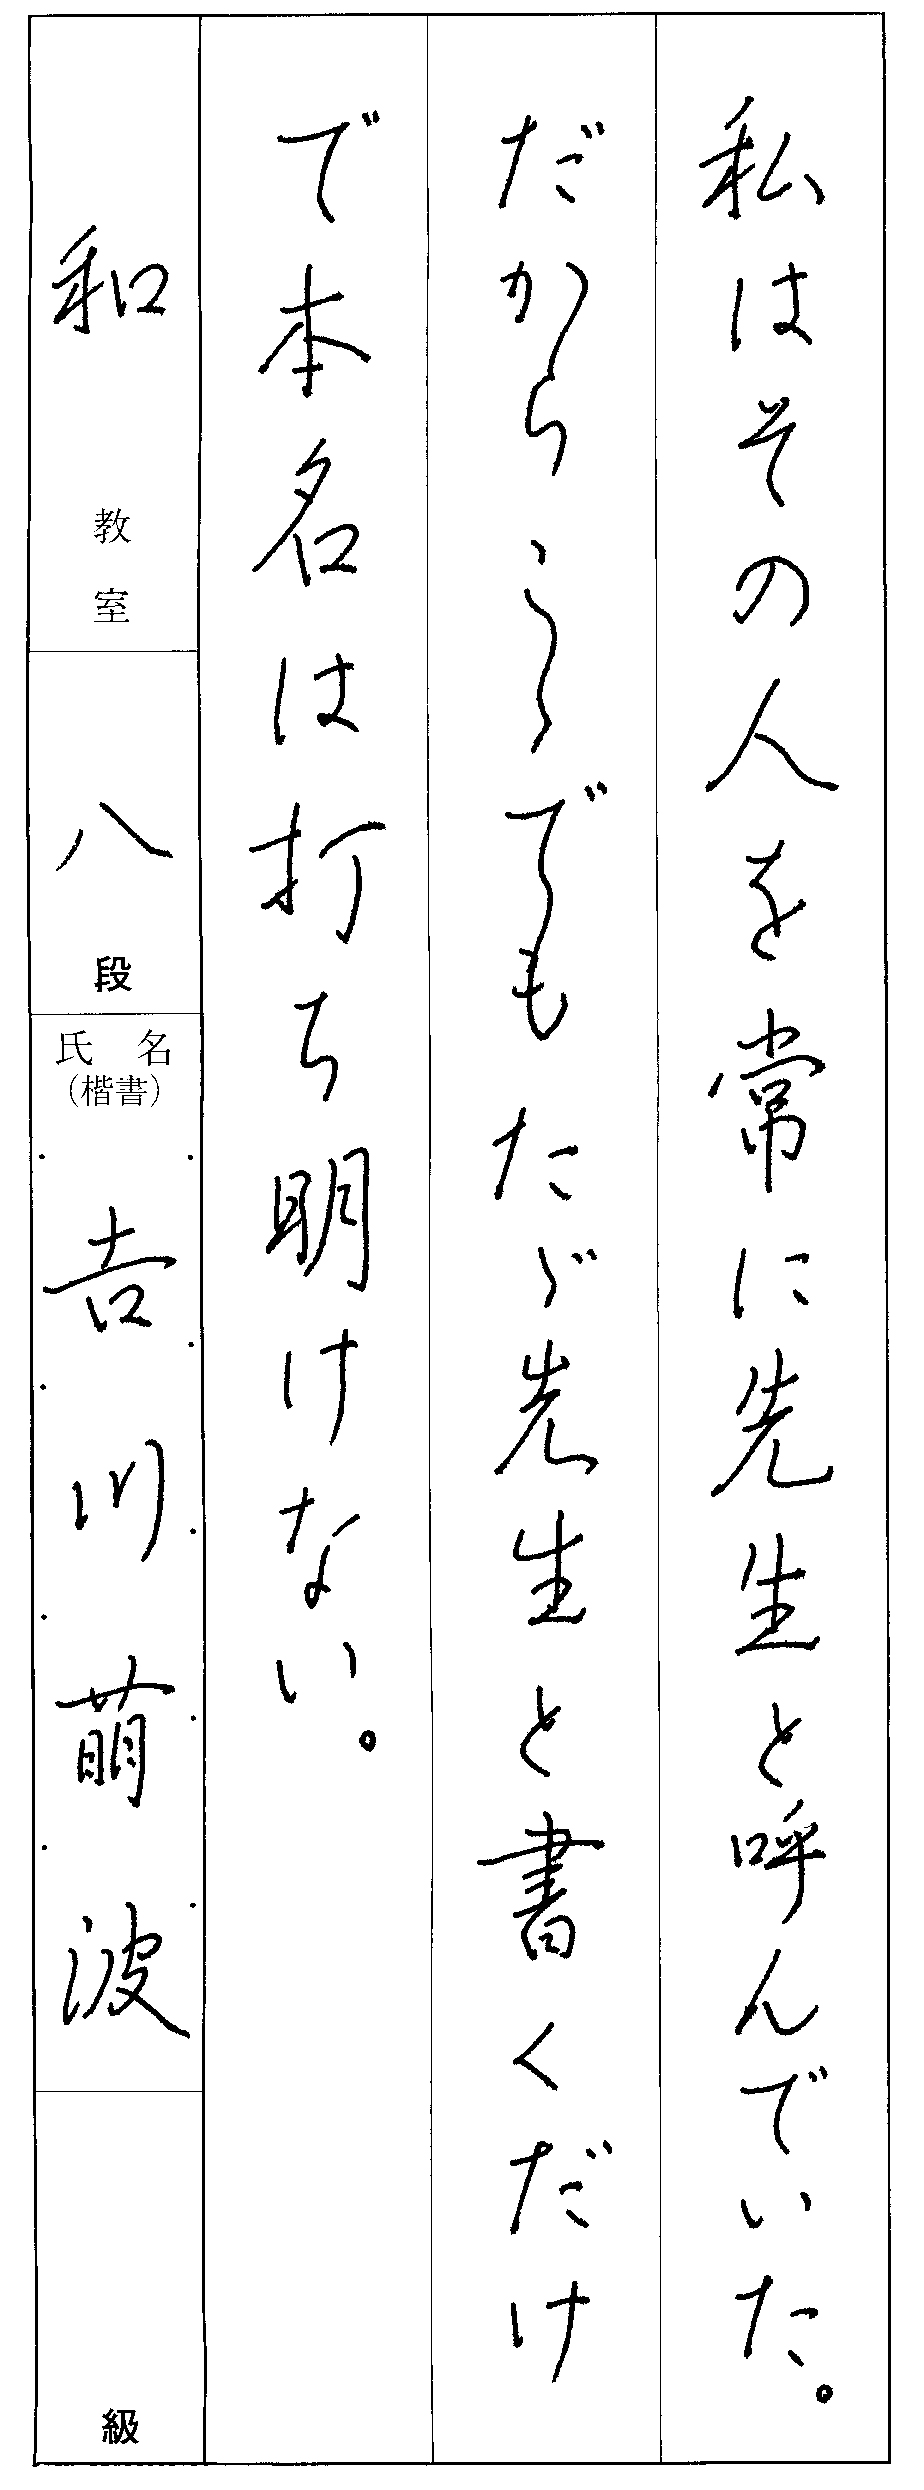 私はその人を常に先生と呼んでいた。
だからこゝでもたゞ先生と書くだけ
で本名は打ち明けない。
和 教室
八 段
氏名
（楷書）
吉川萌波
級